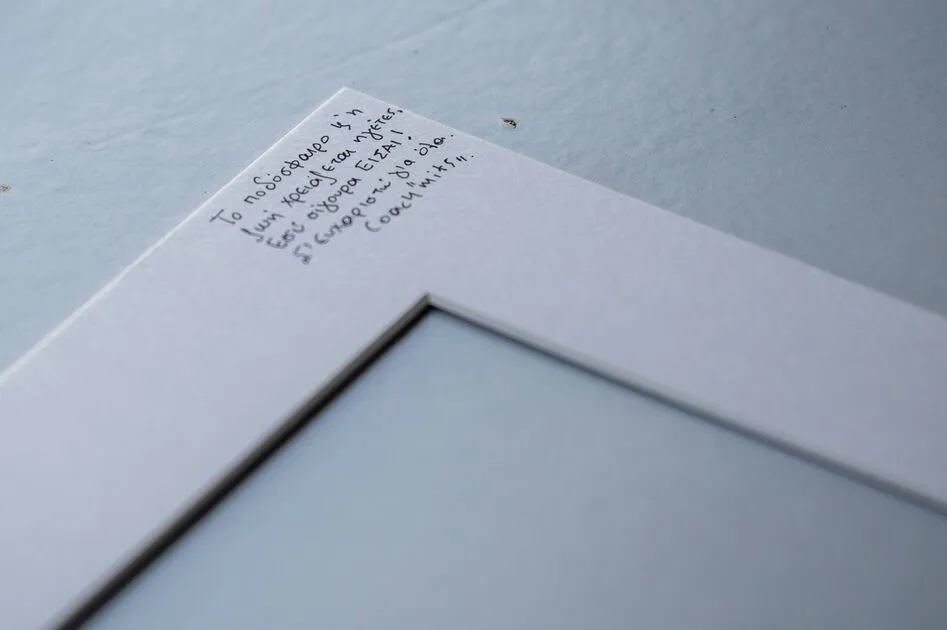 Το ποδόσφαιρο κ' η
ζωή χρειάζεται ηγέτες.
Εσύ σίγουρα ΕΙΣΑΙ!
Σ' ευχαριστώ για όλα.
Coach "mits".